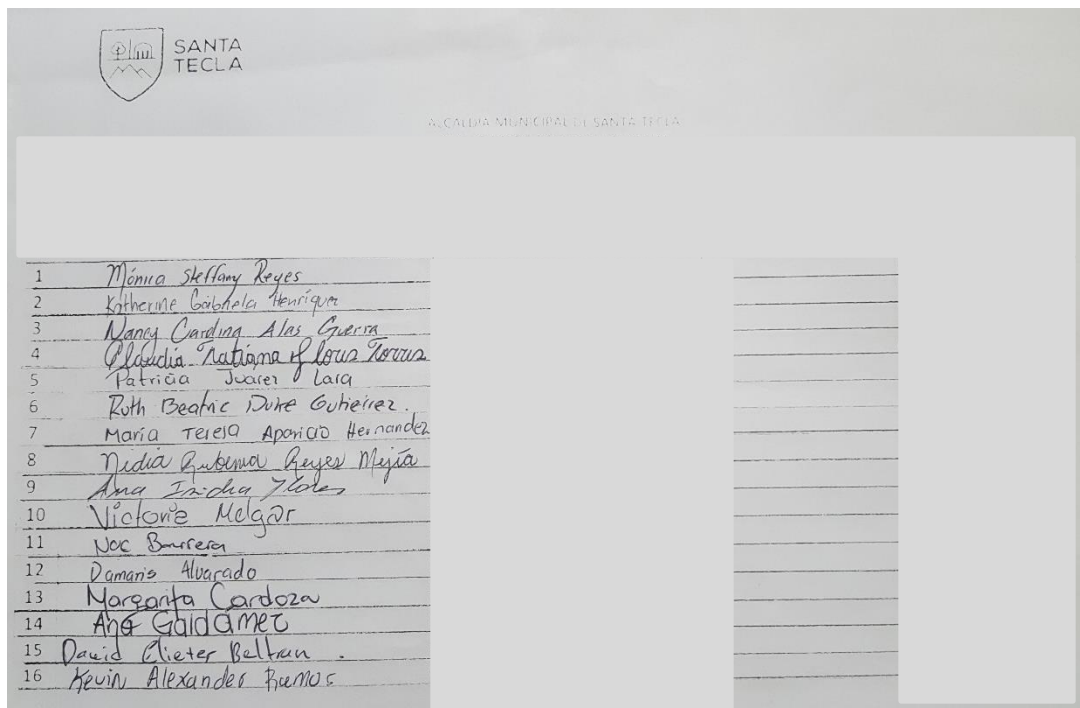 SANTA
TECLA
ALCALDÍA MUNICIPAL DE SANTA TECLA
1 Mónica Steffany Reyes
2 Katherine Gabriela Henríquez
3 Nancy Carolina Alas Guerra
4 Claudia Tatiana Flores Torres
5 Patricia Juárez Lara
6 Ruth Beatric Duke Gutierrez.
7 María Teresa Aparicio Hernandez
8 Nidia Rubenia Reyes Mejía
9 Ana Isidra Flores
10 Victoria Melgar
11 Noe Barrera
12 Damaris Alvarado
13 Margarita Cardoza
14 Ana Galdámez
15 David Elieter Beltran.
16 Kevin Alexander Ramos